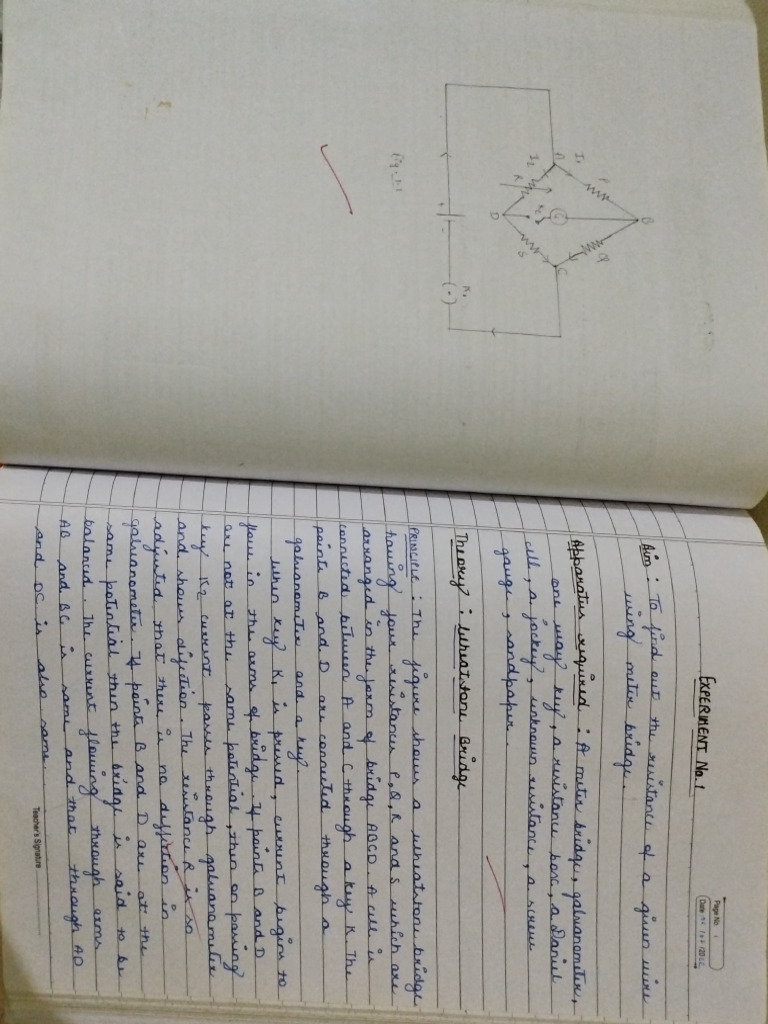 I1
P
B
A
I2
R
G
K2
D
Q
S
C
+ -
K1
( • )
Fig 1.1
Page No. 1
Date
EXPERIMENT No.1
Aim : To find out the resistance of a given wire
using meter bridge.
Apparatus required : A meter bridge, galvanometer,
one way key, a resistance box, a Daniel
cell, a jockey, unknown resistance, a screw
gauge, sandpaper.
Theory : Wheatstone Bridge
PRINCIPLE : The figure shows a wheatstone bridge
having four resistance P, Q, R and S which are
arranged in the form of bridge ABCD. A cell is
connected between A and C through a key K. The
points B and D are connected through a
galvanometer and a key.
When key K1 is pressed, current begins to
flow in the arms of bridge. If points B and D
are not at the same potential, then on passing
key K2 current passes through galvanometer
and shows diflection. The resistance R is so
adjusted that there is no deflection in
galvanometer. If points B and D are at the
same potential then the bridge is said to be
balanced. The current flowing through arms
AB and BC is same and that through AD
and DC is also same.
Teacher's Signature